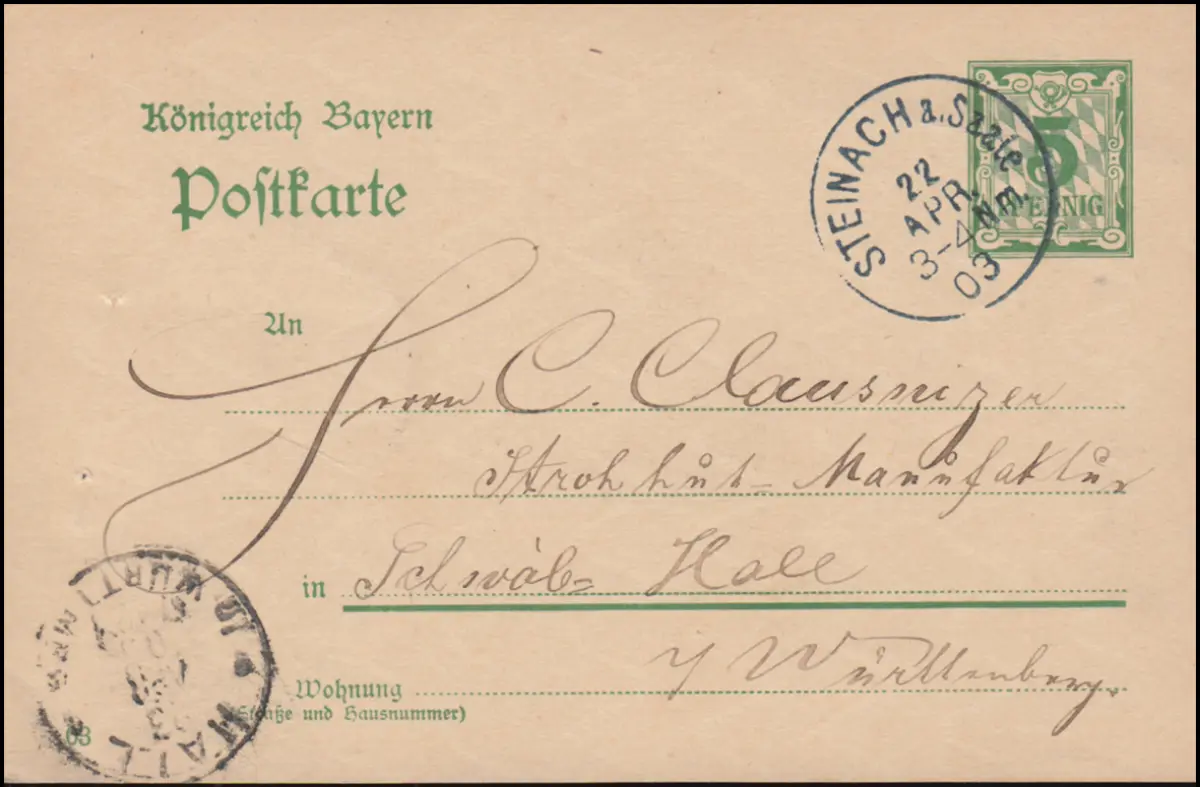 Königreich Bayern
Postkarte
STEINACH a. Saale
22
APR.
3-4 NM.
03
5
PFENNIG
An
Herrn C. Clausnizer
Strohhut-Manufaktur
in Schwäb= Hall
Württenberg.
Wohnung
(Straße und Hausnummer)
03
HALL
WÜRTT